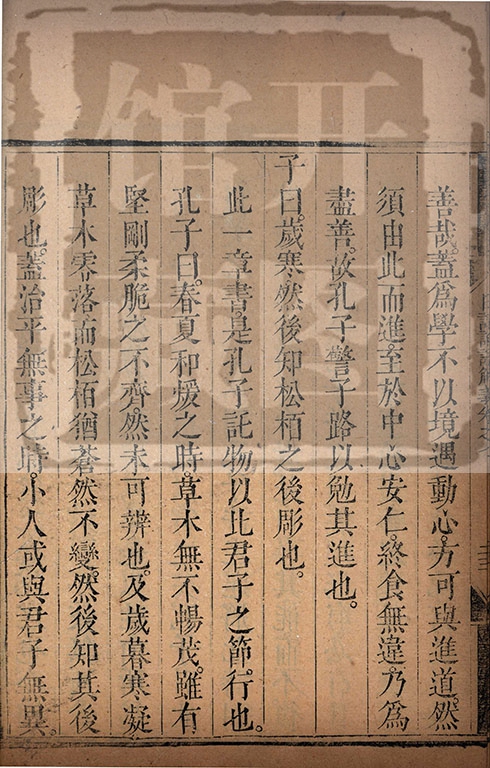 善哉。蓋爲學不以境遇動心。方可與進道。然
須由此而進。至於中心安仁。終食無違。乃爲
盡善。故孔子警子路以勉其進也。
子曰。歲寒然後知松栢之後彫也。
此一章書。是孔子託物以比君子之節行也。
孔子曰。春夏和煖之時。草木無不暢茂。雖有
堅剛柔脆之不齊。然未可辨也。及歲暮寒凝
草木零落。而松栢猶蒼然不變。然後知其後
彫也。蓋治平無事之時。小人或與君子無異。